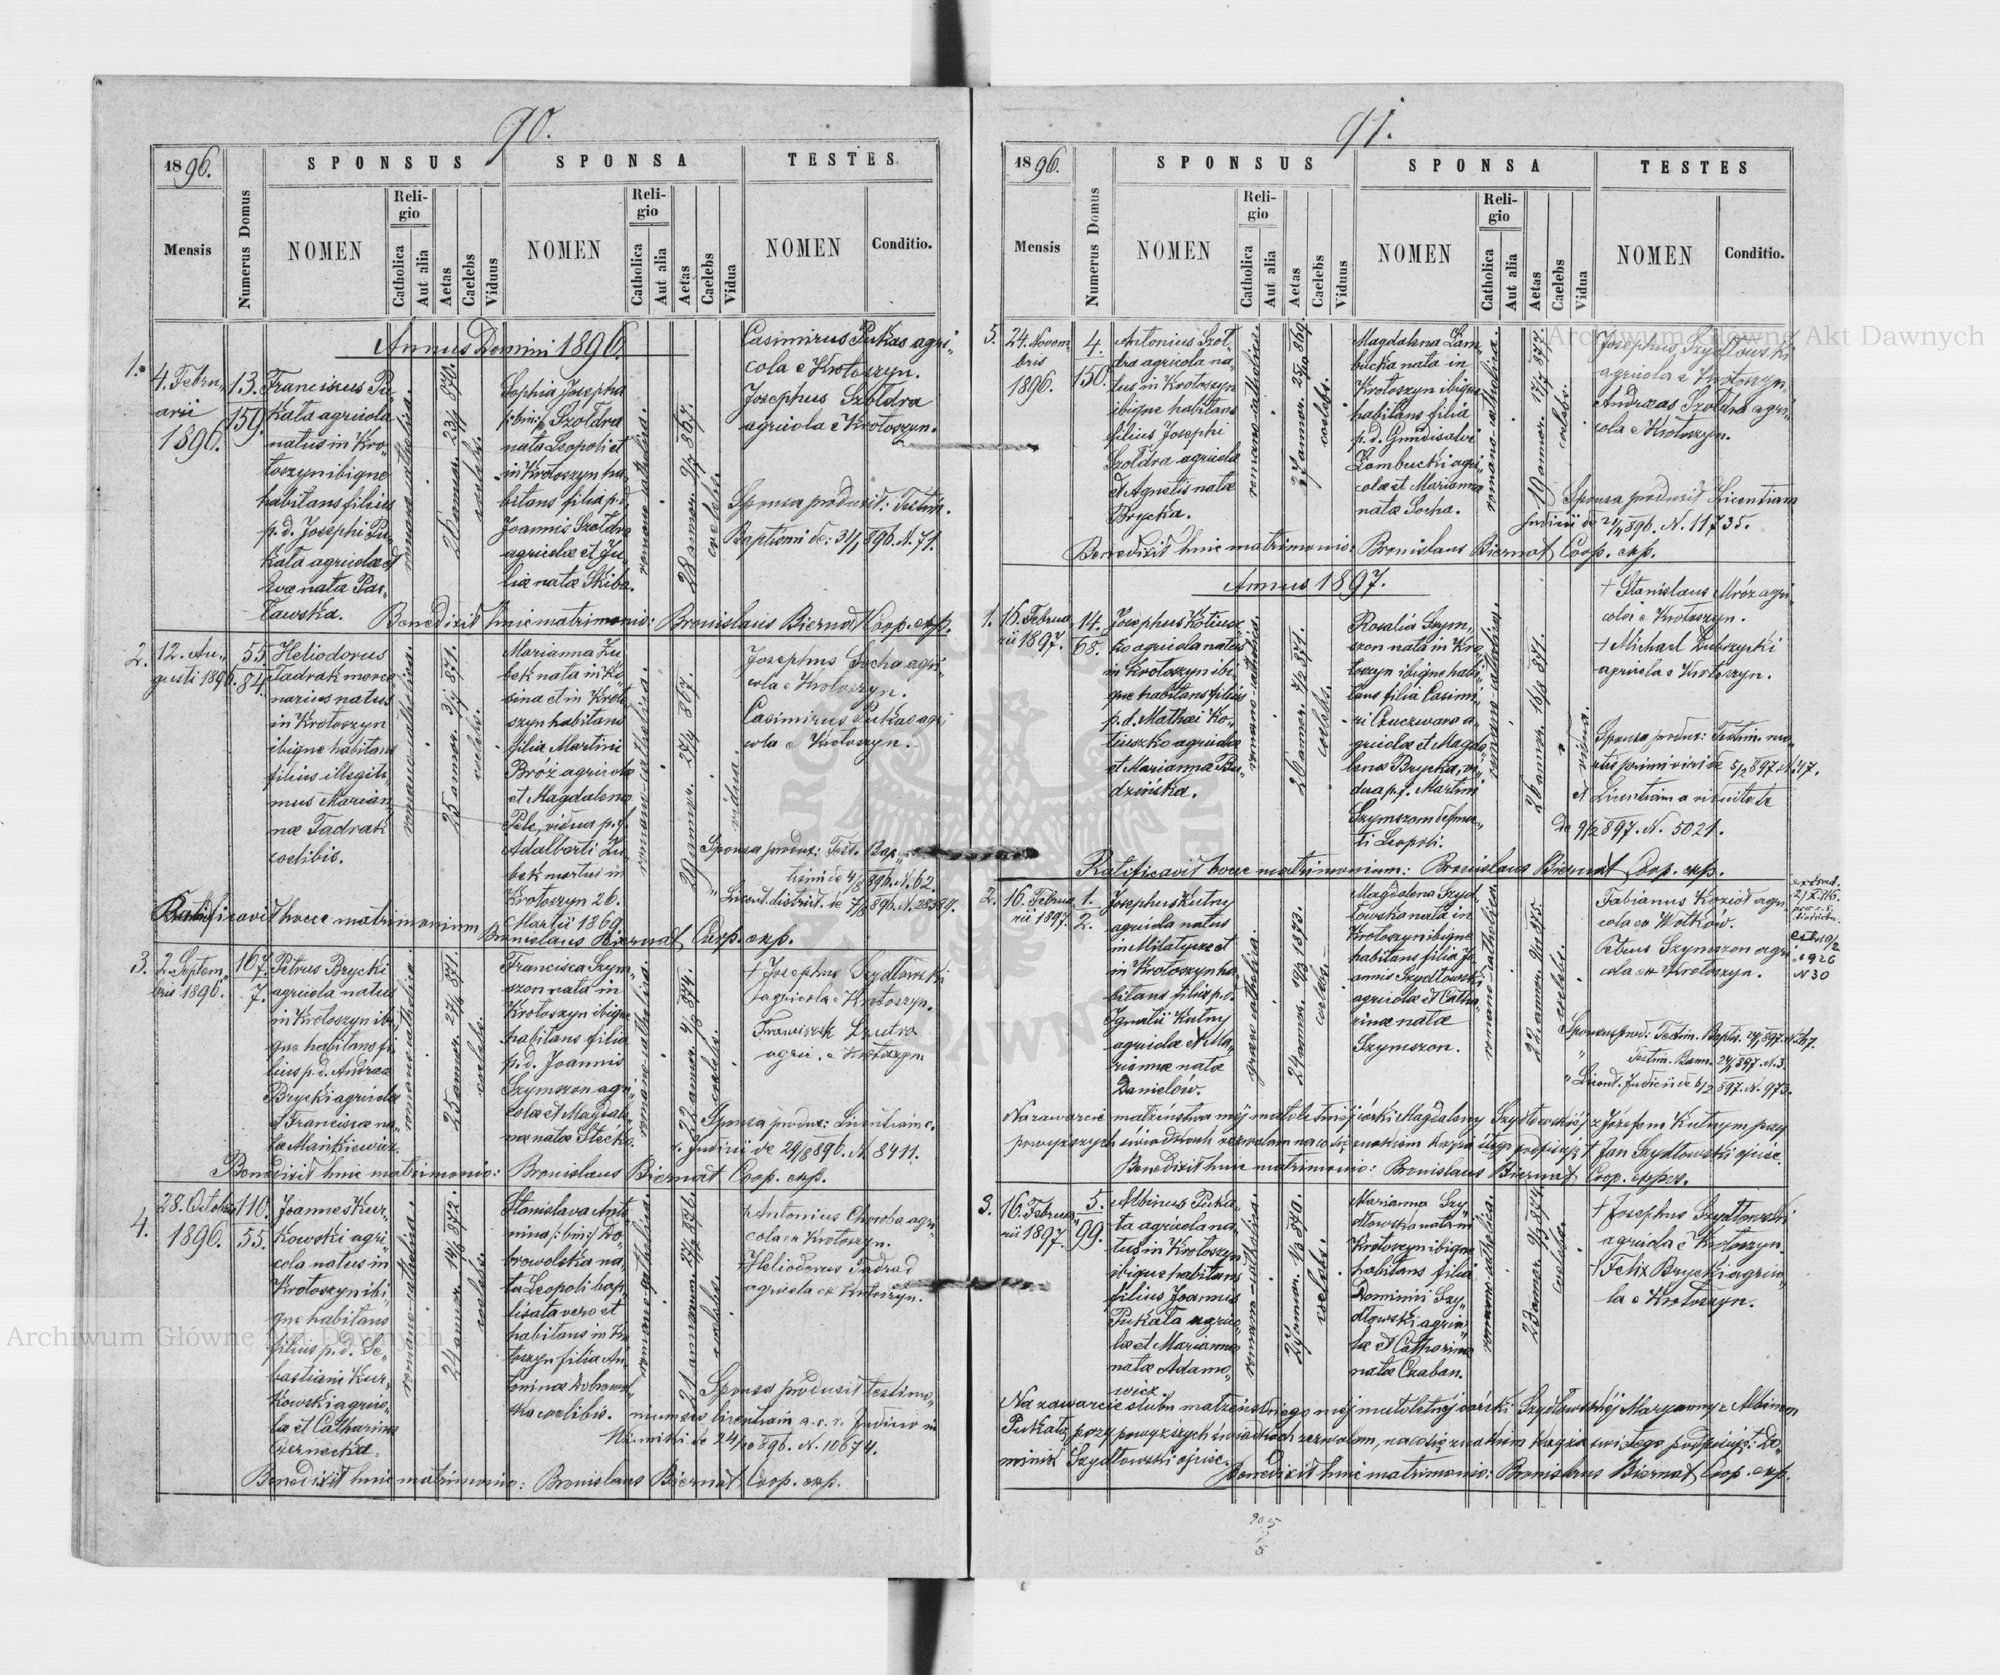 90.
1896.
Mensis
Numerus Domus
SPONSUS
NOMEN
Religio
Catholica
Aut alia
Aetas
Caelebs
Viduus
SPONSA
NOMEN
Religio
Catholica
Aut alia
Aetas
Caelebs
Vidua
TESTES
NOMEN
Conditio.
Annus Domini 1896.
1.
4. Febru„
arii
1896.
13.
159.
Franciscus Pu„
kała agricola
natus in Kro„
toszyn ibique
habitans filius
p. d. Josephi Pu„
kała agricolæ et
Evæ nata Pas„
ławska.
romano-catholica.
26 annor. 870.
caelebs.
Sophia Josepha
/:bin:/ Szołdra
nata Leopoli et
in Krotoszyn ha„
bitans filia p. d.
Joannis Szołdra
agricolæ et Ju„
liæ natæ Skiba.
romano-catholica.
28 annor. 867.
caelebs.
Casimirus Pukas agri„
cola e Krotoszyn.
Josephus Szołdra
agricola e Krotoszyn.
Sponsa produxit: Testim.
Baptismi de: 31/1 896. N. 71.
Benedixit huic matrimonio: Bronislaus Biernat Coop. exp.
2.
12. Au„
gusti 1896.
55.
84.
Heliodorus
Tadrak merce
narius natus
in Krotoszyn
ibique habitans
filius illegiti„
mus Marian
næ Tadrak
coelibis.
romano-catholica.
25 annor. 871.
caelebs.
Marianna Żu„
bek nata in Ki„
sina et in Kroto„
szyn habitans
filia Martini
Bróż agricolæ
et Magdalenæ
Pelc, vidua p. f.
Adalberti Żu„
bek mortui in
Krotoszyn 26.
Martii 1869.
romano-catholica.
29 annor. 867.
vidua.
Josephus Socha agri„
cola e Krotoszyn.
Casimirus Pukas agri
cola e Krotoszyn.
Sponsa produx: Test. Bap„
tismi de 4/8 896. N. 62.
„ Licent. district. de 7/8 896. N. 28389.
Ratificavit hocce matrimonium
Bronislaus Biernat Coop. exp.
3.
2. Septem„
bris 1896.
167.
7.
Petrus Brycki
agricola natus
in Krotoszyn ibi„
que habitans fi„
lius p. d. Andreæ
Brycki agricolæ
et Franciscæ na„
ta Mańkiewicz.
romano-catholica.
25 annor. 871.
caelebs.
Francisca Szym„
szon nata in
Krotoszyn ibique
habitans filia
p. d. Joannis
Szymszon agri„
colæ et Magdale„
næ natæ Stecko.
romano-catholica.
22 annor. 874.
caelebs.
† Josephus Szydłowski
agricola e Krotoszyn.
Franciszek Szutra
agric. e Krotoszyn
Sponsa produx: Licentiam c.
r. Judicii de 29/8 896. N. 8411.
Benedixit huic matrimonio: Bronislaus Biernat Coop. exp.
4.
28. Octobris
1896.
110.
55.
Joannes Kur„
kowski agri„
cola natus in
Krotoszyn ibi„
que habitans
filius p. d. Se„
bastiani Kur„
kowski agrico„
læ et Catharinæ
Czernecka.
romano-catholica.
24 annor. 872.
caelebs.
Stanislava Anto„
nina /:bin:/ Do„
browolska na„
ta Leopoli bap„
tisata vero et
habitans in Kro
toszyn filia An„
toninæ Dobrowol„
ska coelibis.
romano-catholica.
21 annorum
caelebs.
† Antonius Choroba agri„
cola ex Krotoszyn.
† Heliodorus Tadrad
agricola ex Krotoszyn.
Sponsa produxit testimo„
nium et licentiam a. c. r. Judicio in
Winniki de 24/10 896. N. 10674.
Benedixit huic matrimonio: Bronislaus Biernat Coop. exp.
91.
1896.
Mensis
Numerus Domus
SPONSUS
NOMEN
Religio
Catholica
Aut alia
Aetas
Caelebs
Viduus
SPONSA
NOMEN
Religio
Catholica
Aut alia
Aetas
Caelebs
Vidua
TESTES
NOMEN
Conditio.
5.
24. Novem„
bris
1896.
4.
150.
Antonius Szoł„
dra agricola na„
tus in Krotoszyn
ibique habitans
filius Josephi
Szołdra agricolæ
et Agnetis natæ
Brycka.
romano-catholica.
27 annor. 25/10 869.
caelebs.
Magdalena Łam„
bucka nata in
Krotoszyn ibique
habitans filia
p. d. Gundisalvi
Łambucki agri„
colæ et Marianna
natæ Socha.
romano-catholica.
19 annor. 17/7 877.
caelebs.
Josephus Szydłowski
agricola e Krotoszyn.
Andreas Szołdra agri„
cola e Krotoszyn.
Sponsa produxit Licentiam
Judicii de 21/11 896. N. 11735.
Benedixit huic matrimonio: Bronislaus Biernat Coop. exp.
Annus 1897.
1.
16. Februa
rii 1897.
14.
68.
Josephus Kotiusz„
ko agricola natus
in Krotoszyn ibi„
que habitans filius
p. d. Mathæi Ko„
tiuszko agricolæ
et Mariannæ Bu„
dzińska.
romano-catholica.
26 annor. 871.
caelebs.
Rosalia Szym„
szon nata in Kro„
toszyn ibique habi„
tans filia Casimi„
ri Czuczwara a„
gricolæ et Magda„
lenæ Brycka, vi„
dua p. f. Martini
Szymszon defunc„
ti Leopoli.
romano-catholica.
26 annor. 16/2 871.
vidua.
† Stanislaus Mróz agri„
cola e Krotoszyn.
† Michael Dobrzycki
agricola e Krotoszyn.
Sponsa produx: Testim. mor„
tis primi viri de 5/2 897. N. 47.
et Licentiam a viduitate
de 9/2 897. N. 5021.
Ratificavit hocce matrimonium: Bronislaus Biernat Coop. exp.
2.
16. Februa
rii 1897.
1.
2.
Josephus Kutny
agricola natus
in Miłatycze et
in Krotoszyn ha„
bitans filius p. d.
Ignatii Kutny
agricolæ et Ma„
riannæ natæ
Danielów.
græco catholica.
24 annor. 1873.
caelebs.
Magdalena Szyd„
łowska nata in
Krotoszyn ibique
habitans filia Jo„
annis Szydłowski
agricolæ et Catha„
rinæ natæ
Szymszon.
romano-catholica.
22 annor. 875.
caelebs.
Fabianus Kozioł agri„
cola ex Wołków.
Petrus Szymszon agri
cola ex Krotoszyn.
Sponsus prod: Testim. Baptis. 897. N. 267.
„ Testim. Bann. 24/1 897. N. 3.
„ Licent. Judicii de 6/2 897. N. 973.
extrad.
1926
N 30
Na zawarcie małżeństwa mej małoletniej córki Magdaleny Szydłowskiej z Józefem Kutnym przy
powyższych świadkach zezwalam na co się znakiem krzyża św. podpisuję † Jan Szydłowski ojciec.
Benedixit huic matrimonio: Bronislaus Biernat Coop. expos.
3.
16. Februa„
rii 1897.
5.
99.
Albinus Puka„
ła agricola na„
tus in Krotoszyn
ibique habitans
filius Joannis
Pukała agrico„
læ et Mariannæ
natæ Adamo„
wicz.
romano-catholica.
27 annor. 1/3 870.
caelebs.
Marianna Szy„
dłowska nata in
Krotoszyn ibique
habitans filia
Dominici Szy„
dłowski agrico„
læ et Catharinæ
natæ Czaban.
romano-catholica.
23 annor. 874.
caelebs.
† Josephus Szydłowski
agricola e Krotoszyn.
† Felix Brycki agrico„
la e Krotoszyn.
Na zawarcie ślubu małżeńskiego mej małoletniej córki Szydłowskiej Maryanny z Albinem
Pukałą przy powyższych świadkach zezwalam, na co się znakiem krzyża świętego podpisuję: † Do„
minik Szydłowski ojciec.
Benedixit huic matrimonio: Bronislaus Biernat Coop. exp.
Archiwum Główne Akt Dawnych
Archiwum Główne Akt Dawnych